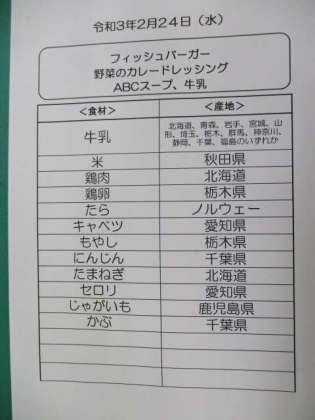 令和3年2月24日（水）
フィッシュバーガー
野菜のカレードレッシング
ABCスープ、牛乳
＜食材＞ ＜産地＞
牛乳 北海道、青森、岩手、宮城、山
形、埼玉、栃木、群馬、神奈川、
静岡、千葉、福島のいずれか
米 秋田県
鶏肉 北海道
鶏卵 栃木県
たら ノルウェー
キャベツ 愛知県
もやし 栃木県
にんじん 千葉県
たまねぎ 北海道
セロリ 愛知県
じゃがいも 鹿児島県
かぶ 千葉県